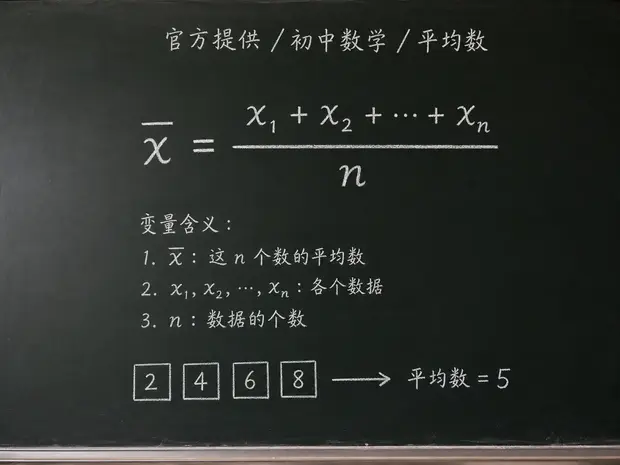 官方提供 / 初中数学 / 平均数
x̄ = (x₁ + x₂ + ··· + xₙ) / n
变量含义：
1. x̄：这 n 个数的平均数
2. x₁, x₂, ···, xₙ：各个数据
3. n：数据的个数
2 4 6 8 → 平均数 = 5